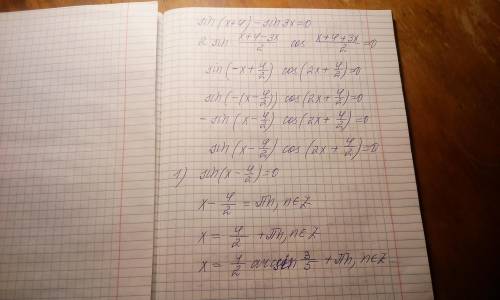 sin(x+φ) - sin3x=0
2 sin (x+φ-3x)/2 cos (x+φ+3x)/2 =0
sin(-x+φ/2) cos(2x+φ/2)=0
sin(-(x-φ/2)) cos(2x+φ/2)=0
- sin(x-φ/2) cos(2x+φ/2)=0
sin(x-φ/2) cos(2x+φ/2)=0
1) sin(x-φ/2)=0
x-φ/2=πn, n∈Z
x=φ/2+πn, n∈Z
x=φ/2 arcsin 3/5+πn, n∈Z